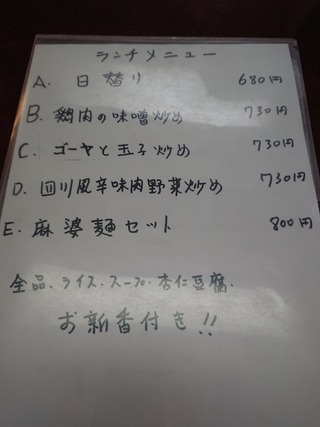 ランチメニュー
A. 日替り 680円
B. 鶏肉の味噌炒め 730円
C. ゴーヤと玉子炒め 730円
D. 四川風辛味肉野菜炒め 730円
E. 麻婆麺セット 800円
全品.ライス.スープ.杏仁豆腐.
お新香付き!!